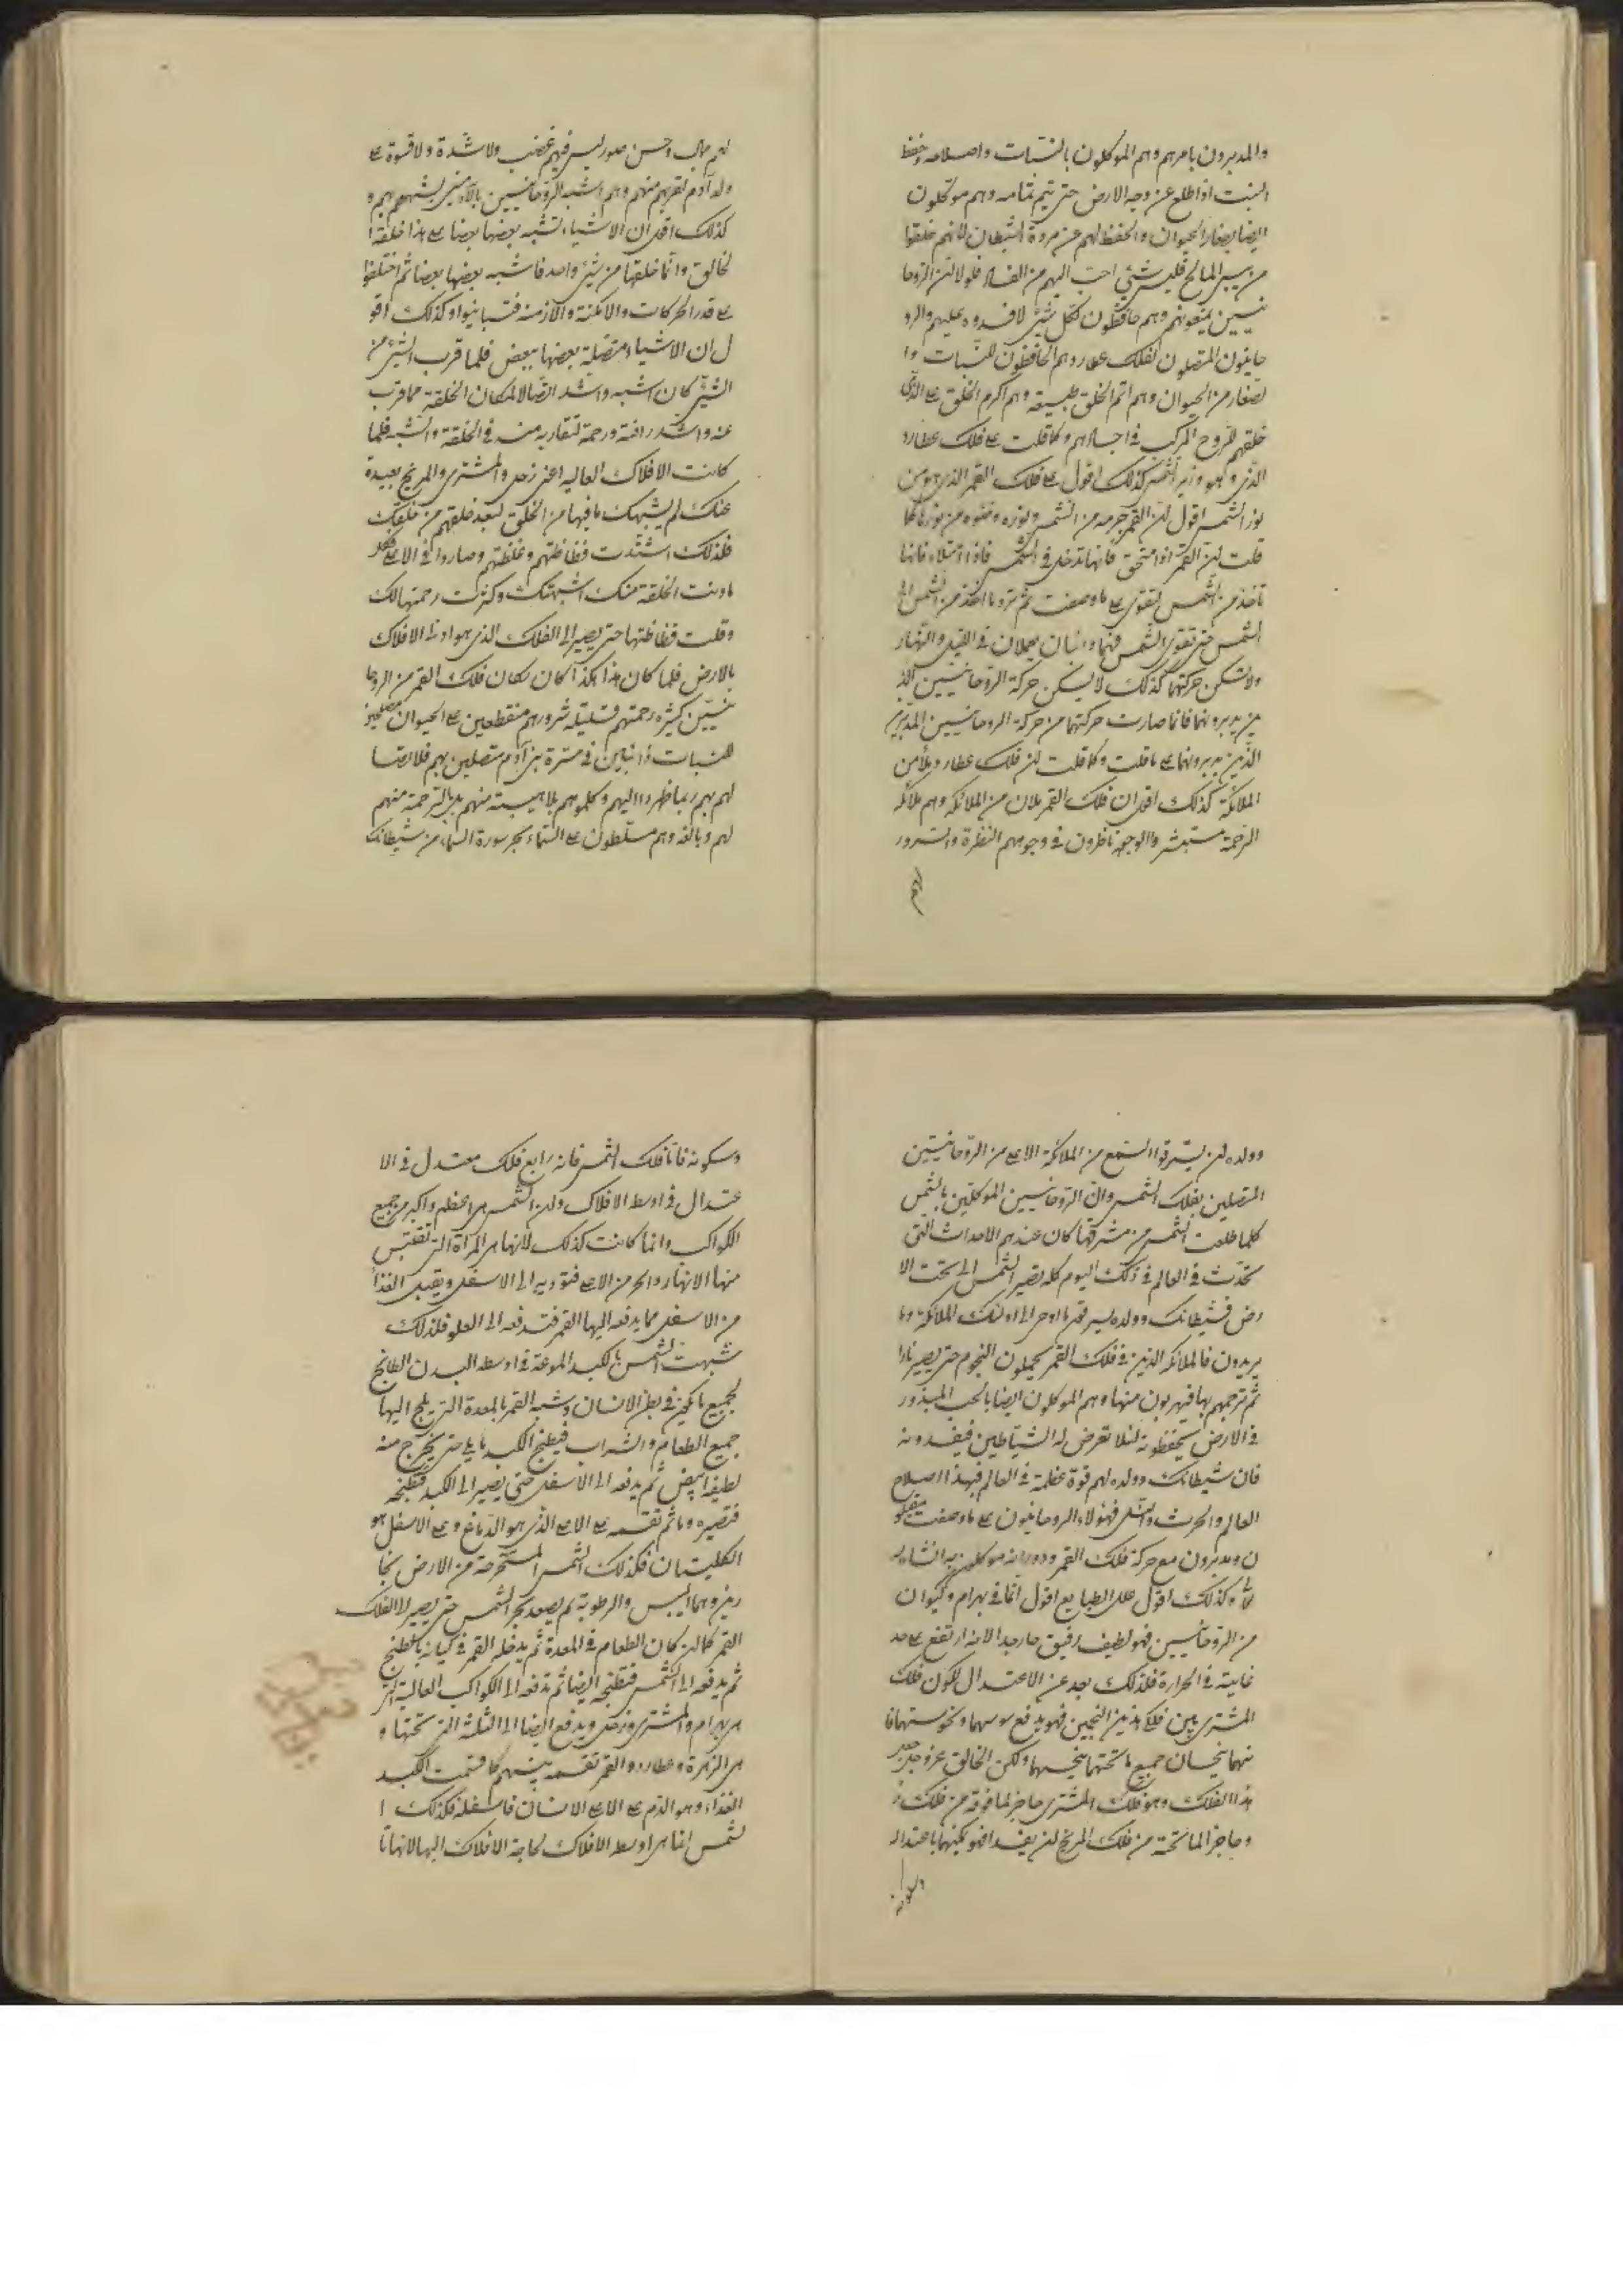 والمدبرون بامرهم وهم الموكلون بالنبات واصلاحه وحفظ
النبت اذا طلع عن وجه الارض حتى يتم تمامه وهم موكلون
ايضا بصغار الحيوان والحفظ لهم عن مردة الشيطان لانهم خلقوا
من يبس المالح فليس شئ احب اليهم من الفساد فلولا ان الروحا
نيين يمنعونهم وهم حافظون لكل شئ لافسدوه عليهم والرو
حانيون المتصلون لفلك عطارد هم الحافظون للنبات وا
لصغار من الحيوان وهم اتم الخلق طبيعة وهم اكرم الخلق على الذى
خلقهم للروح المركب فى اجسادهم وكما قلت على فلك عطارد
الذى هو وزير الشمس كذلك اقول على فلك القمر الذى هو من
نور الشمس اقول ان القمر جرمه من الشمس ونوره وضوه من نورها كما
قلت ان القمر اذا امتحق فانها تدخل فى الشمس فاذا امتلاء فانها
تاخذ من الشمس لتقوى على ما وصفت ثم ترد ما اخذ من الشمس الى
الشمس حتى تقوى الشمس فهما دائبان يعملان فى الليل والنهار
ولا تسكن حركتهما كذلك لا يسكن حركة الروحانيين الذ
ين يدبرونهما فانما صارت حركتهما من حركة الروحانيين المدبرين
الذين يدبرونهما على ما قلت وكما قلت ان فلك عطارد ملأ من
الملائكة كذلك اقول ان فلك القمر ملان من الملائكة وهم ملائكة
الرحمة مستبشروا الوجوه ناظرون فى وجوههم النظرة والسرور
لهم
لهم مهاب وحسن صور ليس فيهم غضب ولا شدة ولا قسوة على
ولد آدم لقربهم منهم وهم اشبه الروحانيين بالآدميين لشبههم بهم و
كذلك اقول ان الاشياء تشبه بعضها بعضا على هذا خلقه ا
لخالق وانما خلقها من شئ واحد فاشبه بعضها بعضا ثم اختلفوا
على قدر الحركات والامكنة والازمنة فتباينوا وكذلك اقو
ل ان الاشياء متصلة بعضها ببعض فلما قرب الشئ من
الشئ كان اشبه واشد اتصالا لمكان الخلقة مما قرب
عنه واشد رافة ورحمة لتقاربه منه فى الخلقة والشبه فلما
كانت الافلاك العالية اعنى زحل والمشترى والمريخ بعيدة
عنك لم يشبهك ما فيها من الخلق لبعد خلقهم من خلقك
فلذلك اشتدت فظاظتهم وغلظتهم وصاروا فى الاعلى فكلما
دنت الخلقة منك اشبهتك وكثرت رحمتها لك
وقلت فظاظتها حتى يصير الى الفلك الذى هو ادنى الافلاك
بالارض فلما كان هذا هكذا كان مكان فلك القمر من الروحا
نيين كثيره رحمتهم قليلة شرورهم منقطعين على الحيوان مصلحين
للنبات دائبين فى مسرة بنى آدم متصلين بهم فلا اتصا
لهم بهم ربما ظهروا اليهم وكلموهم بلا هيبة منهم بل بالرحمة منهم
لهم وبالفه وهم مسلطون على السماء بحرسورة السماء من شيطانك
وولده لئن يسترقوا السمع من الملائكة الاعلى من الروحانيين
المتصلين بفلك الشمس وان الروحانيين الموكلين بالشمس
كلما طلعت الشمس من مشرقها كان عندهم الاحداث التى
تحدث فى العالم فى ذلك اليوم كله تصير الشمس الى تحت الا
رض فشيطانك وولده يسرقون ما اوحى الى اولئك الملائكة وما
يريدون فالملائكة الذين فى فلك القمر يحملون النجوم حتى يصير نارا
ثم ترجمهم بها فيهربون منها وهم الموكلون ايضا بالحب المبذور
فى الارض يحفظونه لئلا تعرض له الشياطين فيفسدونه
فان شيطانك وولده لهم قوة عظمة فى العالم فبهذا اصلاح
العالم والحرث والنسل فهؤلاء الروحانيون على ما وصفت
ن ويدبرون مع حركة فلك القمر ودورانه موكلين به
وكذلك اقول على الطبايع اقول انما فى بهرام وكيوان
من الروحانيين فهو لطيف رقيق حار جدا لانه ارتفع على حد
غايته فى الحرارة فلذلك بعد عن الاعتدال لكون فلك
المشترى بين فلكى هذين النجمين فهو يدفع بوسهما ونحوستهما فا
نهما ينحسان جميع ما تحتهما بنحسهما ولكن الخالق عز وجل صير
هذا الفلك وهو فلك المشترى حاجزا لما فوقه من فلك ز
وحاجزا لما تحته من فلك المريخ لئن يفسدا فهو يمكنهما باعتداله
وسكونه
وسكونه فاما فلك الشمس فانه رابع فلك معتدل فى الا
عتدال فى اوسط الافلاك ولان الشمس هى اعظم واكبر من جميع
الكواكب وانما كانت كذلك لانها هى المرآة التى تقتبس
منها الانهار والحر من الاعلى فتؤديه الى الاسفل ويقبل الغذا
من الاسفل مما يدفعه اليها القمر فتدفعه الى العلو فلذلك
شبهت الشمس بالكبد الموضوعة فى اوسط البدن الطابخ
لجميع ما يكون فى بطن الانسان وشبه القمر بالمعدة التى يلج اليها
جميع الطعام والشراب فيطبخ الكبد ما يلى حتى يخرج منه
لطيفا ابيض ثم يدفعه الى الاسفل حتى يصير الى الكبد فتطبخه
فتصيره دما ثم تقسمه على الاعلى الذى هو الدماغ وعلى الاسفل هو
الكليتان فكذلك الشمس المستخرجة من الارض بخا
رين وهما اليبس والرطوبة ثم يصعد بحر الشمس حتى يصير الى الفلك
القمر كما ان كان الطعام فى المعدة ثم يدخله القمر فى كيانه بالطبخ
ثم يدفعه الى الشمس فتطبخه ايضا ثم تدفعه الى الكواكب العالية التى
هى بهرام والمشترى وزحل ويدفع ايضا الى الثلثة التى تحتها و
هى الزهرة وعطارد والقمر تقسمه بينهم كما قسمت الكبد
الغذاء وهو الدم على الاعلى الانسان فاسفله فكذلك ا
لشمس انما هى اوسط الافلاك لحاجة الافلاك اليها لانها تا